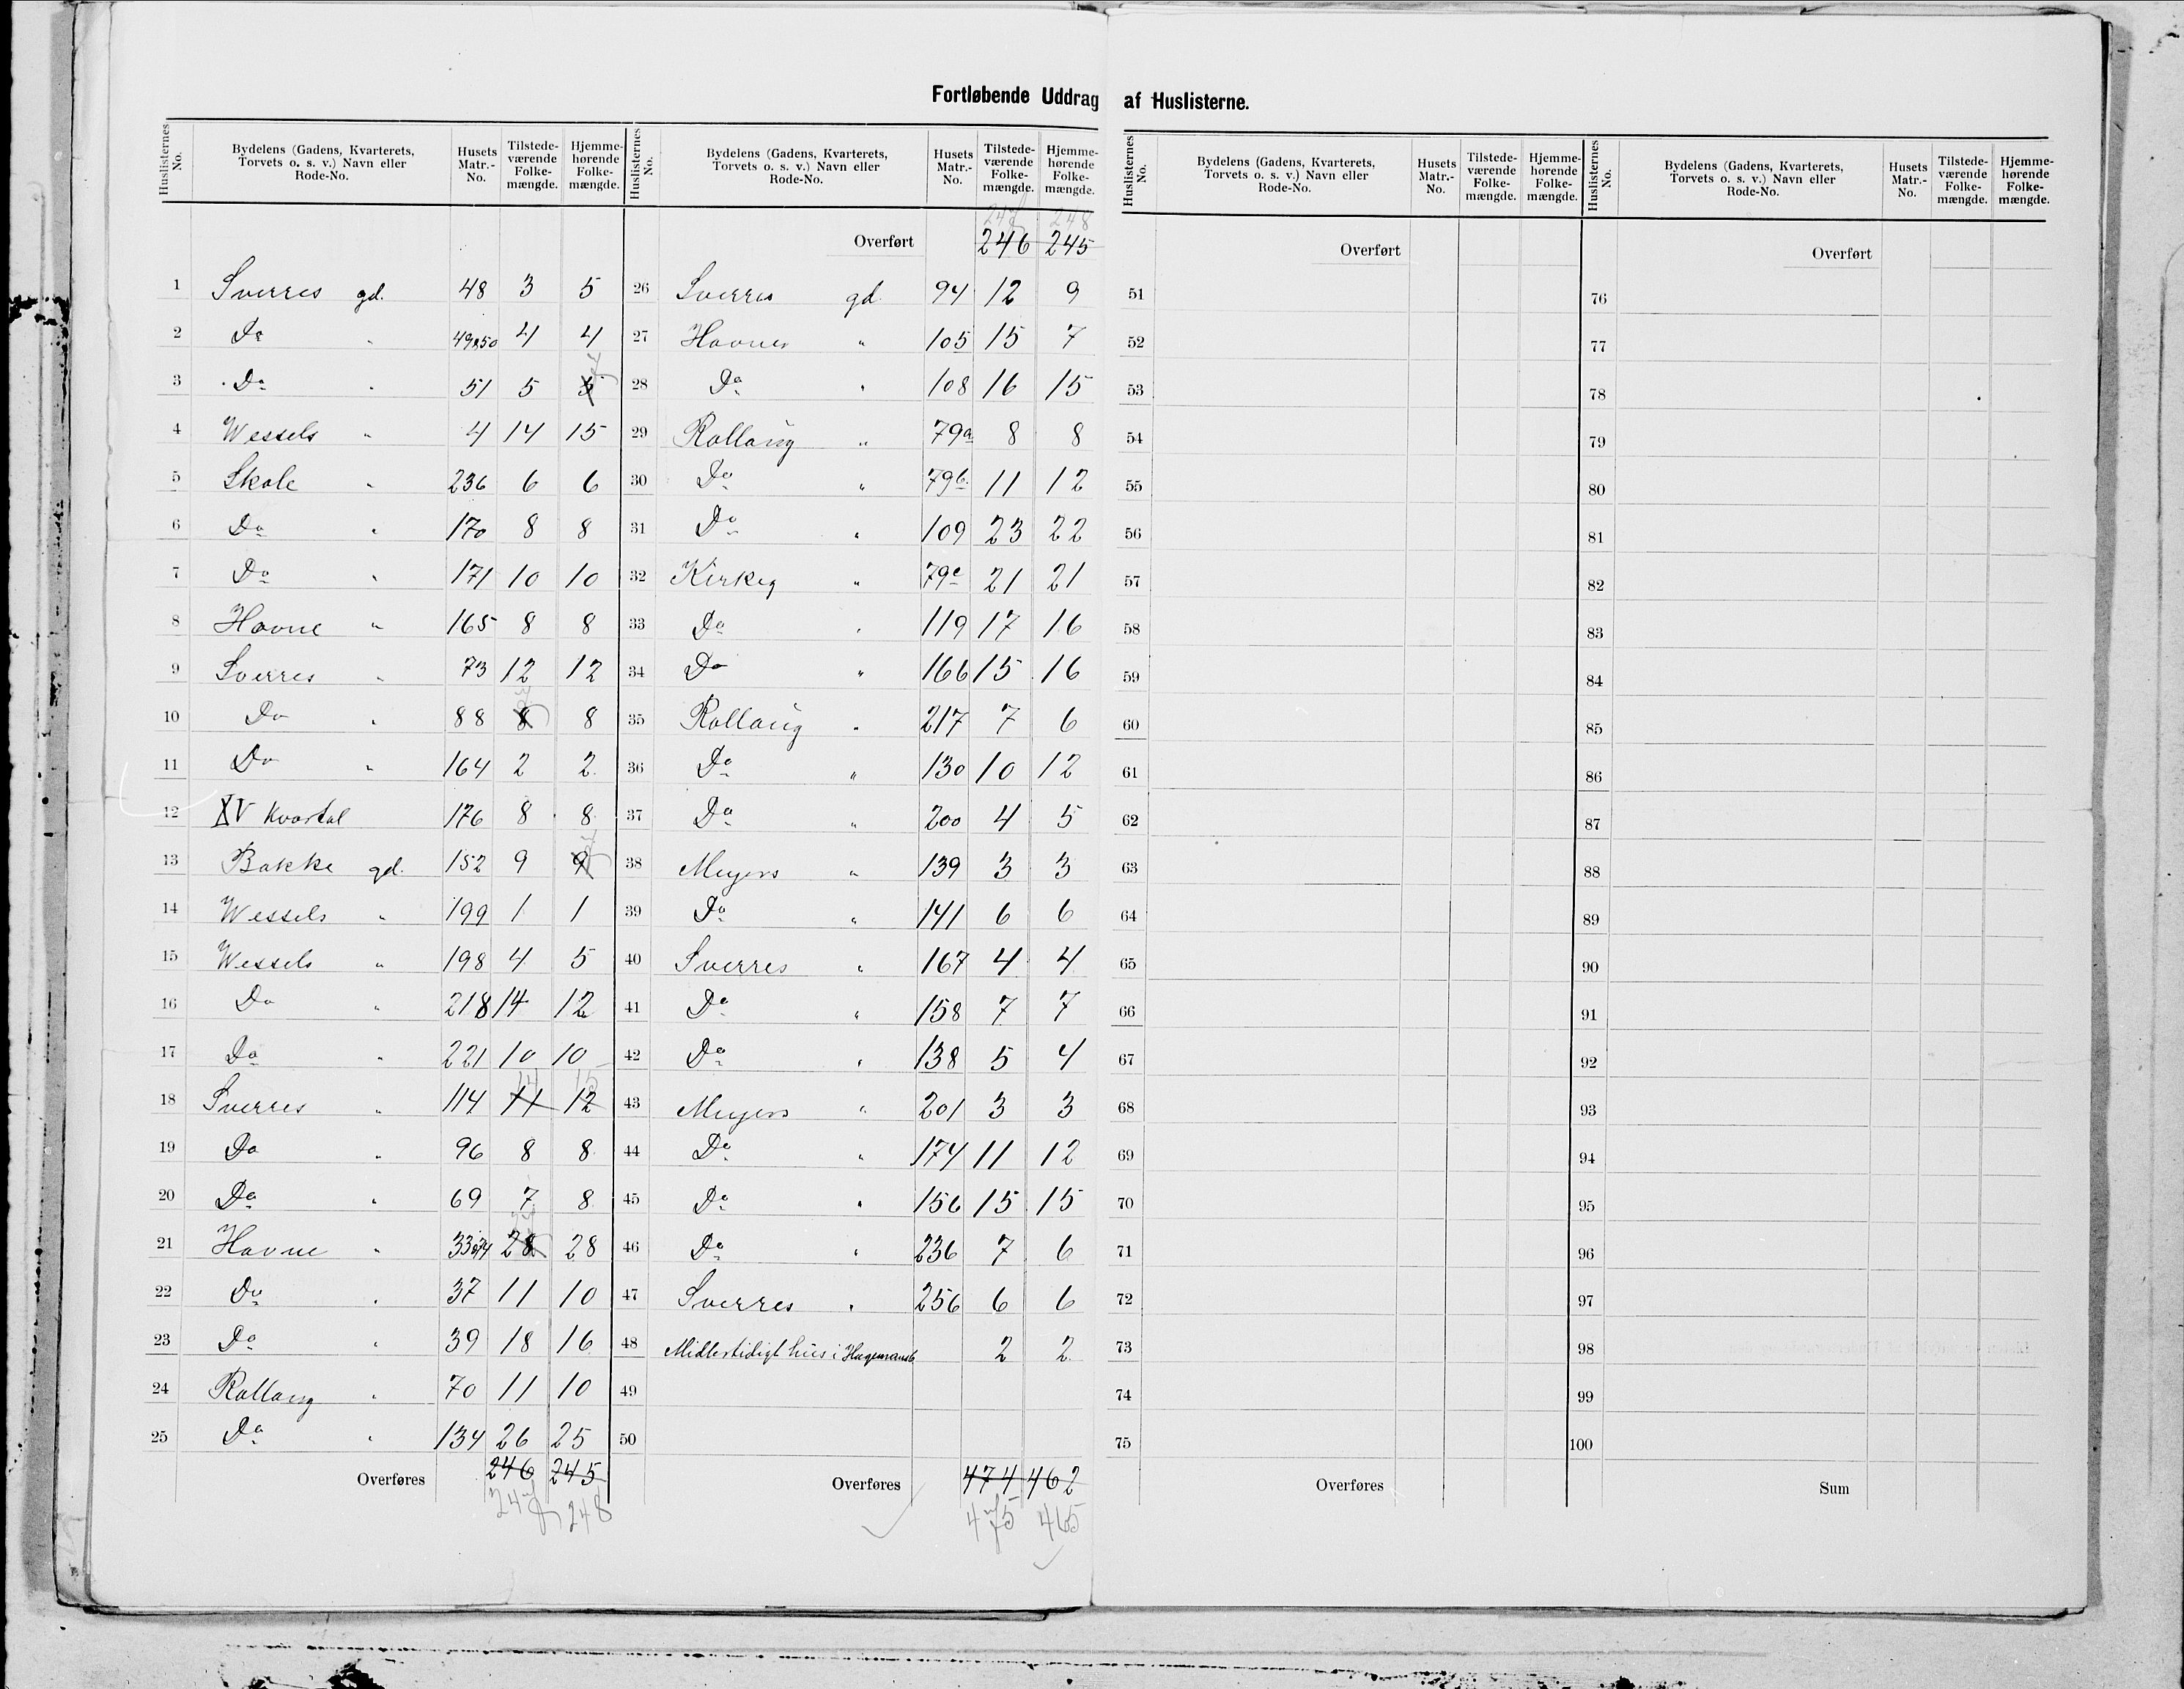 Fortløbende Uddrag af Huslisterne.
Huslisternes No. Bydelens (Gadens, Kvarterets, Torvets o. s. v.) Navn eller Rode-No. Husets Matr.-No. Tilstedeværende Folkemængde. Hjemmehørende Folkemængde.
1 Sverres gd. 48 3 5
2 Do " 49&50 4 4
3 Do " 51 5 5 4
4 Wessels " 4 14 15
5 Skole " 236 6 6
6 Do " 170 8 8
7 Do " 171 10 10
8 Havne " 165 8 8
9 Sverres " 73 12 12
10 Do " 88 8
11 Do " 164 2 2
12 XV Kvartal 176 8 8
13 Bakke gd. 152 9 9
14 Wessels " 199 1 1
15 Wessels " 198 4 5
16 Do " 218 14 12
17 Do " 221 10 10
18 Sverres " 114 11 12 14 15
19 Do " 96 8 8
20 Do " 69 7 8
21 Havne " 33&34 28 28
22 Do " 37 11 10
23 Do " 39 18 16
24 Rollaug " 70 11 10
25 Do " 134 26 25
Overføres 246 245
247 248
Huslisternes No. Bydelens (Gadens, Kvarterets, Torvets o. s. v.) Navn eller Rode-No. Husets Matr.-No. Tilstedeværende Folkemængde. Hjemmehørende Folkemængde.
247 248
Overført 246 245
26 Sverres gd. 94 12 9
27 Havnes " 105 15 7
28 Do " 108 16 15
29 Rollaug " 79a 8 8
30 Do " 79b 11 12
31 Do " 109 23 22
32 Kirkeg " 79c 21 21
33 Do " 119 17 16
34 Do " 166 15 16
35 Rollaug " 217 7 6
36 Do " 130 10 12
37 Do " 200 4 5
38 Meyers " 139 3 3
39 Do " 141 6 6
40 Sverres " 167 4 4
41 Do " 158 7 7
42 Do " 138 5 4
43 Meyers " 201 3 3
44 Do " 174 11 12
45 Do " 156 15 15
46 Do " 236 7 6
47 Sverres " 256 6 6
48 Midlertidigt hus i 2 2
49
50
Overføres 474 462
475 465
Huslisternes No. Bydelens (Gadens, Kvarterets, Torvets o. s. v.) Navn eller Rode-No. Husets Matr.-No. Tilstedeværende Folkemængde. Hjemmehørende Folkemængde.
Overført
51
52
53
54
55
56
57
58
59
60
61
62
63
64
65
66
67
68
69
70
71
72
73
74
75
Overføres
Huslisternes No. Bydelens (Gadens, Kvarterets, Torvets o. s. v.) Navn eller Rode-No. Husets Matr.-No. Tilstedeværende Folkemængde. Hjemmehørende Folkemængde.
Overført
76
77
78
79
80
81
82
83
84
85
86
87
88
89
90
91
92
93
94
95
96
97
98
99
100
Sum